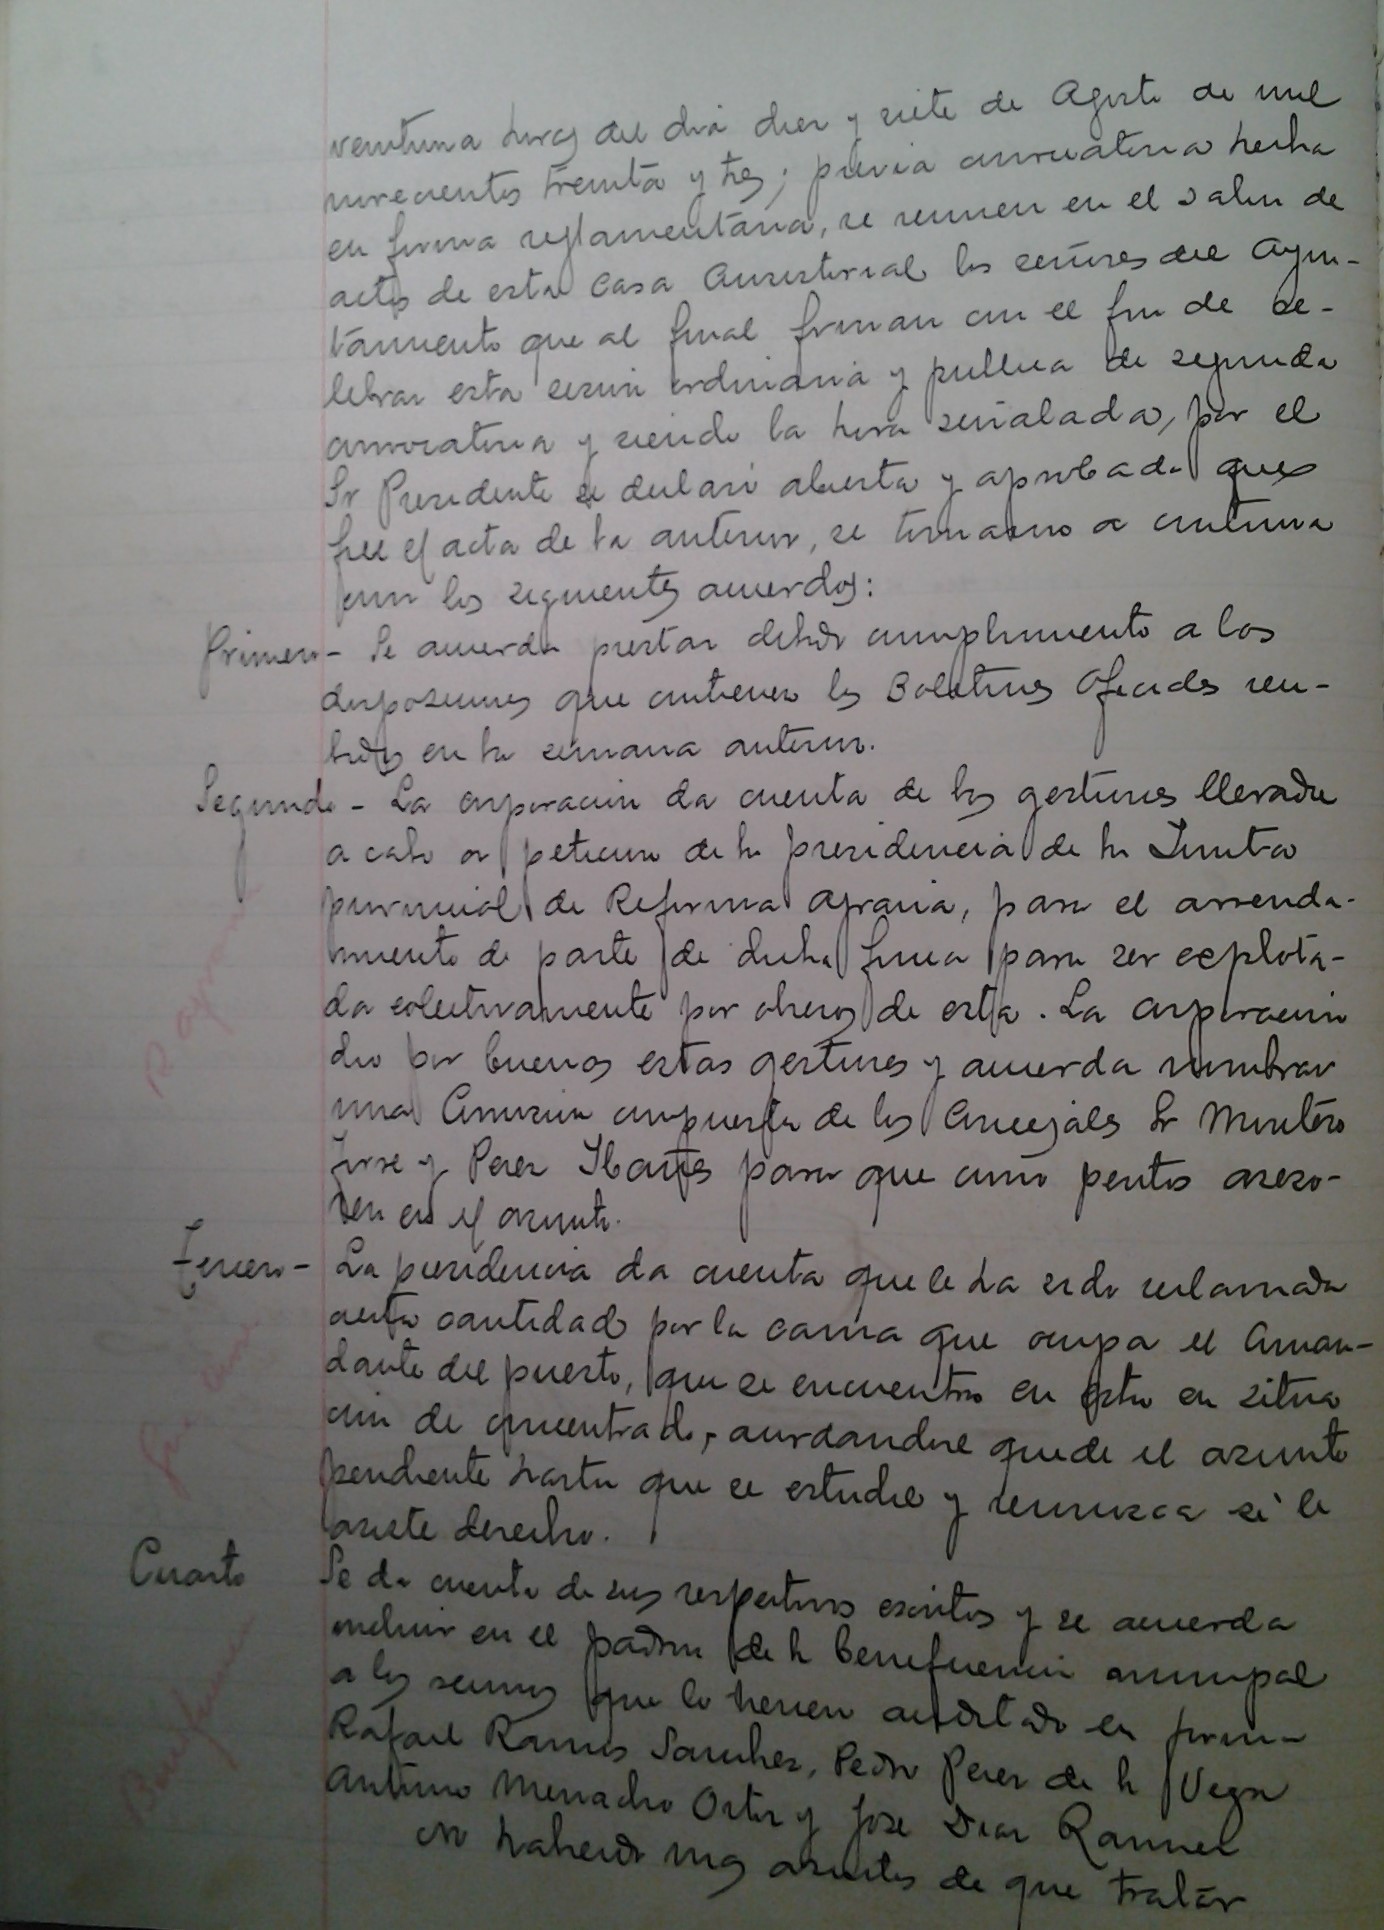 veintiuna horas del dia diez y siete de Agosto de mil
novecientos treinta y tres; previa convocatoria hecha
en forma reglamentaria, se reunen en el salon de
actos de esta Casa Consistorial los señores del Ayun-
tamiento que al final firman con el fin de ce-
lebrar esta sesion ordinaria y publica de segunda
convocatoria y siendo la hora señalada, por el
Sr Presidente se declaró abierta y aprobada que
fue el acta de la anterior, se tomaron a continua
cion los siguientes acuerdos:
Primero - Se acuerda prestar debido cumplimiento a las
disposiciones que contienen los Boletines Oficiales reci-
bidos en la semana anterior.
Segundo - La corporacion da cuenta de las gestiones llevadas
a cabo a peticion de la presidencia de la Junta
provincial de Reforma Agraria, para el arrenda-
miento de parte de dicha finca para ser explota-
da colectivamente por obreros de esta. La corporacion
dio por buenas estas gestiones y acuerda nombrar
una Comision compuesta de los Concejales Sr Montero
Jose y Perez Ibañes para que como peritos aseso-
ren en el asunto.
R agraria
Tercero - La presidencia da cuenta que le ha sido reclamada
cierta cantidad por la cama que ocupa el Coman-
dante del puesto, que se encuentra en esta en situa
cion de concentrado, acordandose quede el asunto
pendiente hasta que se estudie y reconozca si le
asiste derecho.
Cuarto Se da cuenta de sus respectivos escritos y se acuerda
incluir en el padron de la beneficencia municipal
a los vecinos que lo tienen acreditado en forma
Rafael Ramos Sanchez, Pedro Perez de la Vega
Antonio Menacho Ortiz y Jose Diaz Ramirez
Beneficencia
No habiendo mas asuntos de que tratar